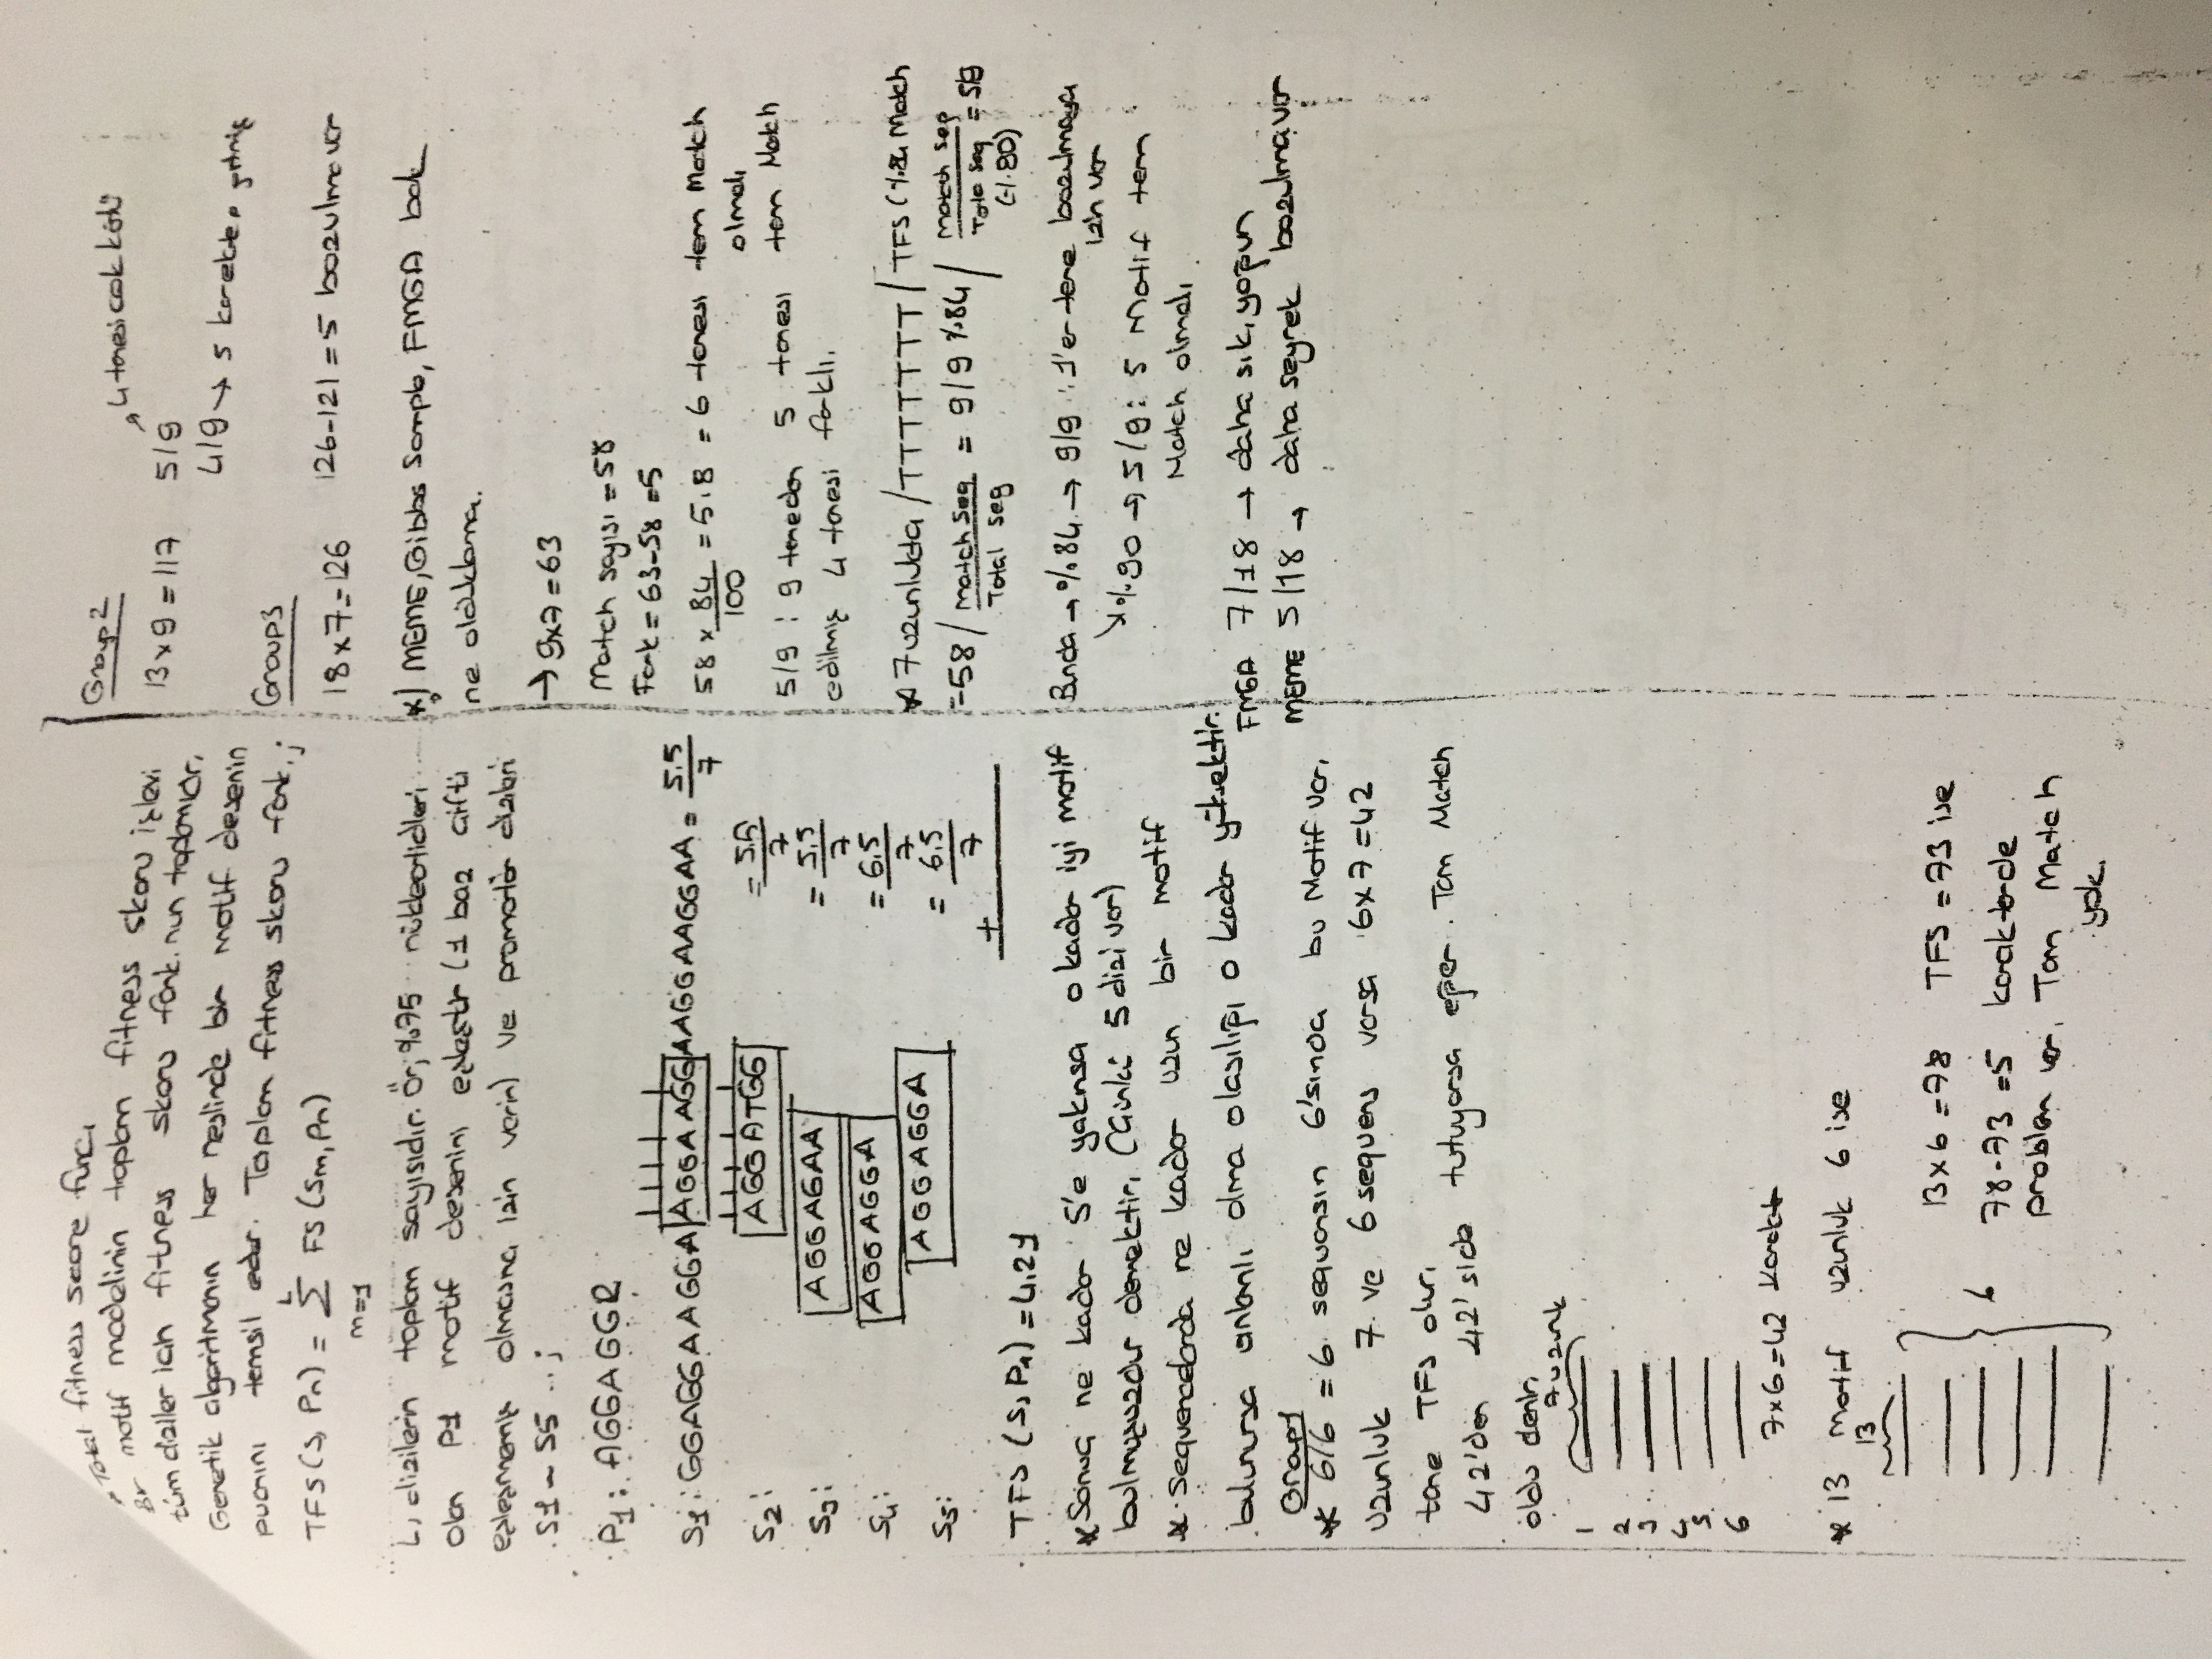 Total fitness score func,
Bir motif modelinin toplam fitness skoru işlevi
tüm diziler için fitness skoru fonk.nun toplamıdır.
Genetik algoritmanın her neslinde bir motif desenin
puanını temsil eder. Toplam fitness skoru fonk. ;
TFS(S, Pn) = Σ FS (Sm, Pn)
L
m=1
L, dizilerin toplam sayısıdır. Ör; %75 nükleotidleri
olan P1 motif desenini eşleştir (1 baz çifti
eşleşmemiş olmasına izin verin) ve promotör dizileri
S1 ~ S5 ... ;
P1: AGGAGGR
S1: GGAGGAAGGA AGGAAGG AAGGAAGGAA = 5.5/7
S2: AGGATGG = 5.5/7
S3: AGGAGAA = 5.5/7
S4: AGGAGGA = 6.5/7
S5: AGGAGGA = 6.5/7
+
TFS (S, P1) = 4.21
* Sonuç ne kadar 5'e yakınsa o kadar iyi motif
bulmuşuzdur demektir. (Çünkü 5 dizi var)
* Sequencelarda ne kadar uzun bir motif
bulunursa anlamlı olma olasılığı o kadar yüksektir.
Group1
* 6/6 = 6 sequensın 6'sında bu Motif var.
Uzunluk 7 ve 6 sequens varsa 6x7=42
tane TFS olur.
42'den 42'side tutuyorsa eğer. Tam Match
oldu denir.
7 uzunluk
1
2
3
4
5
6
7x6=42 karakter
* 13 Motif uzunluk 6 ise
13
6
13x6=78 TFS = 73 ise
78-73 =5 karakterde
problem var. Tam Match
yok.
Group2
4 tanesi çok kötü
13x9=117 5/9
4/9 → 5 karakter gitmiş
Group3
18x7=126 126-121=5 bozulma var
*) MEME, Gibbs Sample, FMGA bak
ne olduklarına.
→ 9x7=63
Match sayısı = 58
Fark = 63-58 =5
58 x 84/100 = 5.8 = 6 tanesi tam Match
olmalı
5/9 : 9 taneden 5 tanesi tam Match
edilmiş 4 tanesi farklı.
* 7 uzunlukta /TTTTTTT/ TFS (%84 Match
=58/ Match Seq/Total seq = 9/9 %84 / Match seq/Total seq = 5/9
(%80)
Bunda → %84 → 9/9 : 1'er tane bozulmaya
izin var
%90 → 5/9: 5 Motif tam
Match olmalı.
FMGA 7/18 → daha sık, yoğun
MEME 5/18 → daha seyrek bozulma var